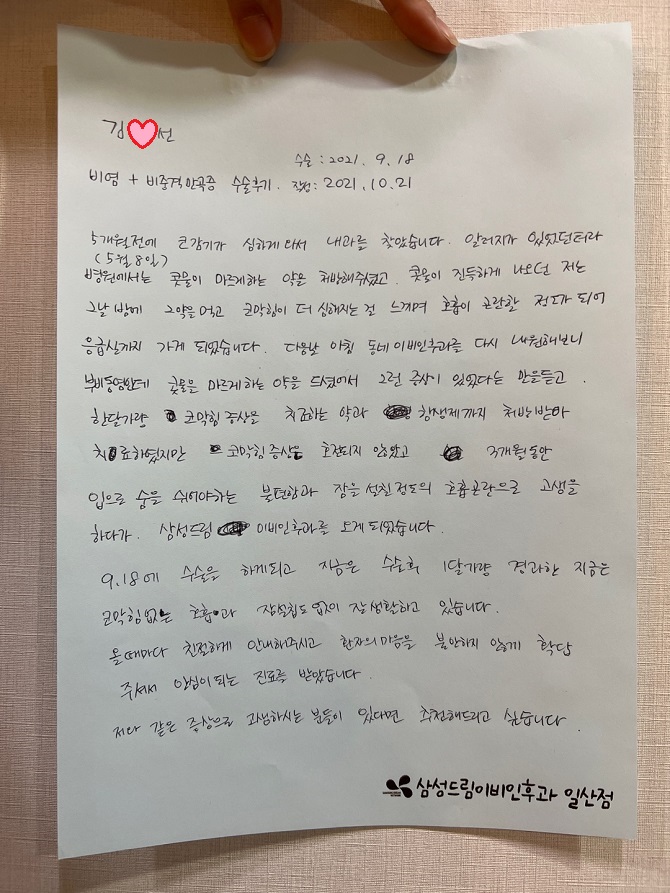 김 선
수술 : 2021. 9. 18
비염 + 비중격만곡증 수술후기. 작성: 2021. 10. 21
5개월전에 코감기가 심하게 와서 내과를 찾았습니다. 알러지가 있었던터라
(5월 8일)
병원에서는 콧물이 마르게하는 약을 처방해주셨고. 콧물이 진득하게 나오던 저는
그날 밤에 그약을 먹고 코막힘이 더 심해지는 걸 느끼며 호흡이 곤란할 정도가 되어
응급실까지 가게 되었습니다. 다음날 아침 동네 이비인후과를 다시 내원해보니
부비동염인데 콧물을 마르게 하는 약을 드셨어서 그런 증상이 있었다는 말을듣고.
한달가량 코막힘 증상을 치료하는 약과 항생제까지 처방받아
치료하였지만 코막힘 증상은 호전되지 않았고 3개월동안
입으로 숨을 쉬어야하는 불편함과 잠을 설친 정도의 호흡곤란으로 고생을
하다가. 삼성드림 이비인후과를 오게 되었습니다.
9.18에 수술을 하게되고 지금은 수술후 1달가량 경과한 지금은
코막힘없는 호흡과 잠설침도 없이 잘 생활하고 있습니다.
올때마다 친절하게 안내해주시고 환자의 마음을 불안하지 않게 화답
주셔서 안심이 되는 진료를 받았습니다.
저와 같은 증상으로 고생하시는 분들이 있다면 추천해드리고 싶습니다.
삼성드림이비인후과 일산점